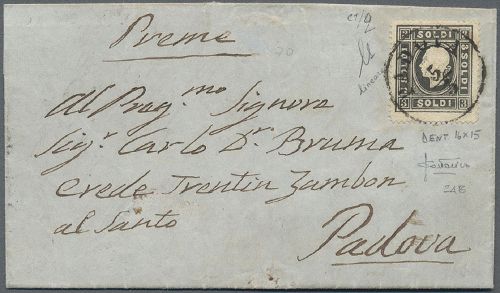 Preme
SOLDI
3 SOLDI
SOLDI
Al Preg.mo Signore
Sig.r Carlo Dr. Bruma
Erede Trentin Zambon
al Santo
Padova
DENT 16X15
24B